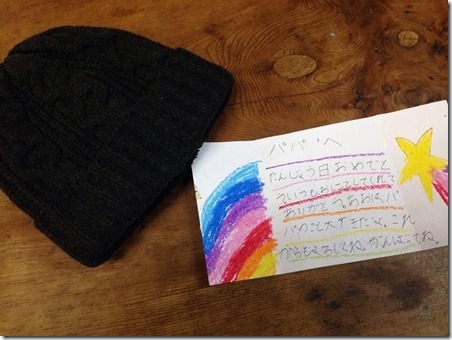 パパへ
たんじょう日おめでと
う いつもおしごとしてくれて
ありがとう。 パ
パのこと大すきだよ。これ
からもよろしくね。がんばってね。